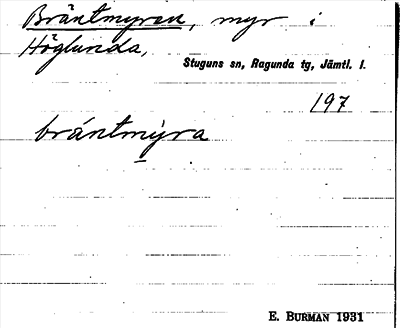 Bräntmyran, myr i
Höglunda,
Stuguns sn, Ragunda tg, Jämtl. l.
197
brántmỳra
E. BURMAN 1931